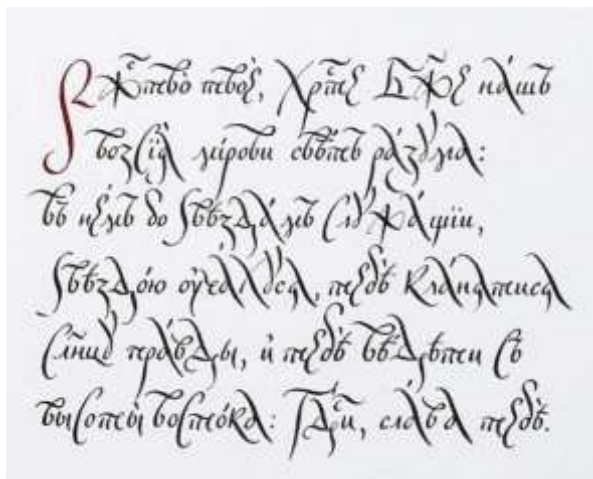 Рж҇тво̀ твоѐ, Хрⷭ҇тѐ Бж҃е на́шъ
возсїѧ̀ мі́рови свѣ́тъ ра́зꙋма:
въ не́мъ бо ѕвѣзда́мъ слꙋжа́щїи,
ѕвѣздо́ю ᲂу҆ча́хꙋсѧ, тебѣ̀ кла́нѧтисѧ
сл҃нцꙋ пра́вды, и҆ тебѣ̀ вѣ́дѣти съ
высоты̀ восто́ка: Гдⷭ҇и, сла́ва тебѣ̀.